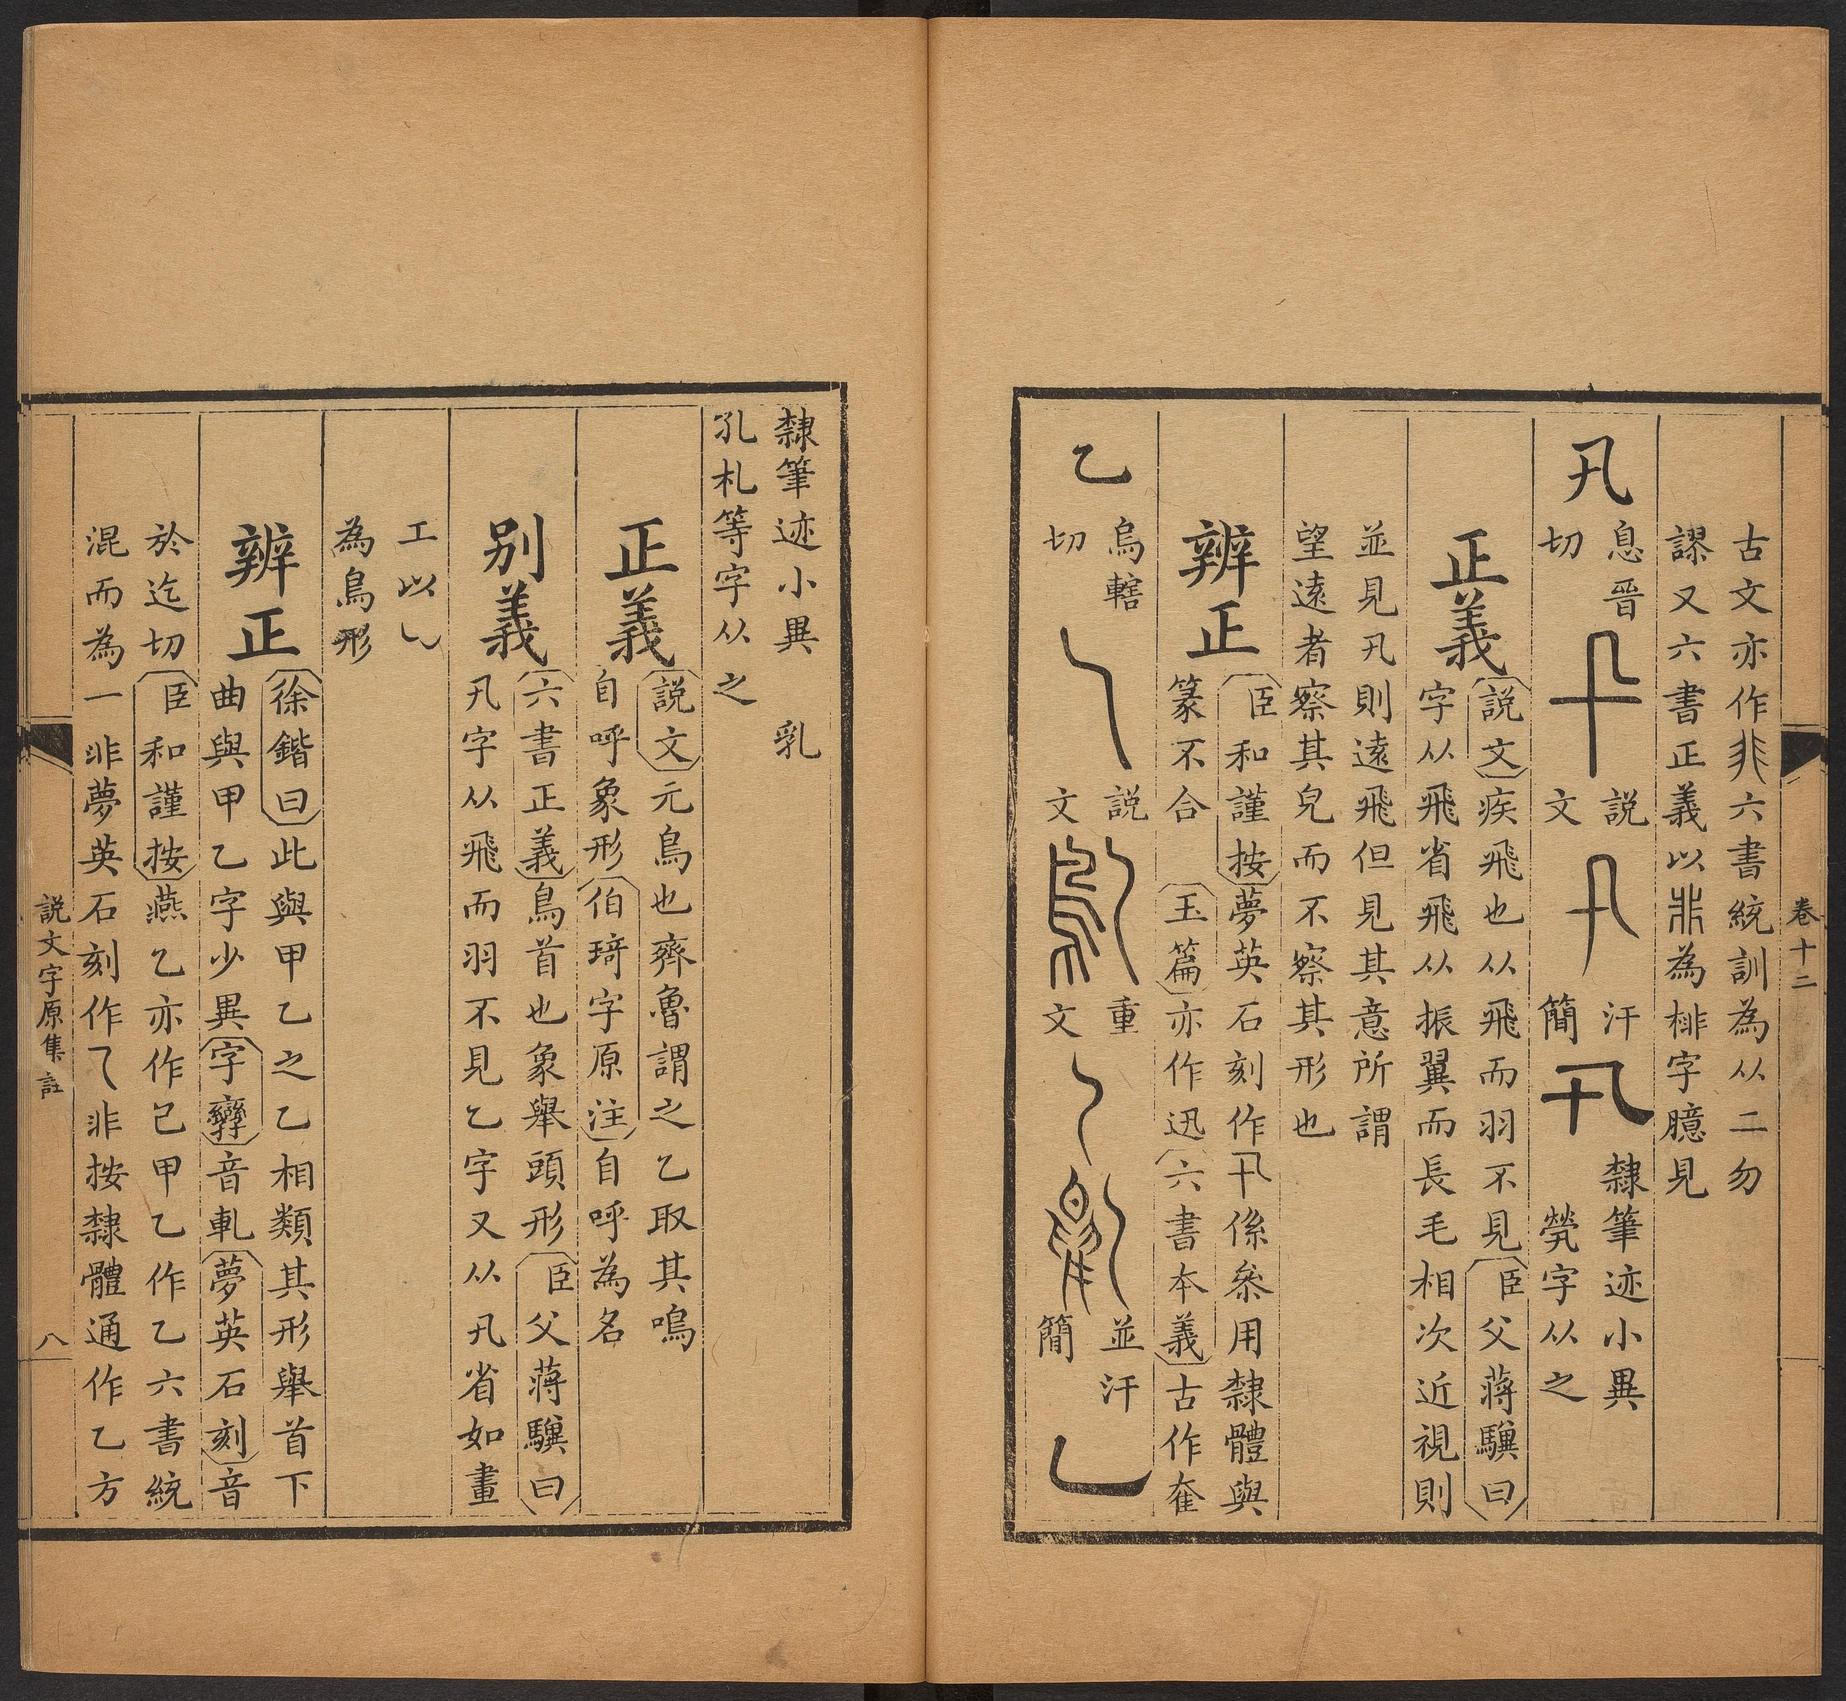 卷十二
古文亦作非六書統訓為从二勿
謬又六書正義以非為排字臆見
卂
息晉
切
説
文
汗
簡
隸筆迹小異
煢字从之
正義
説文疾飛也从飛而羽不見臣父蔣驥曰
字从飛省飛从振翼而長毛相次近視則
並見卂則遠飛但見其意所謂
望遠者察其皃而不察其形也
辨正
臣和謹按夢英石刻作卂係叅用隸體與
篆不合 玉篇亦作迅六書本義古作奞
乙
烏轄
切
説
文
重
文
並汗
簡
隸筆迹小異 乳
孔札等字从之
正義
説文元鳥也齊魯謂之乙取其鳴
自呼象形伯琦字原注自呼為名
别義
六書正義鳥首也象舉頭形臣父蔣驥曰
卂字从飛而羽不見乙字又从卂省如畫
工以乚
為鳥形
辨正
徐鍇曰此與甲乙之乙相類其形舉首下
曲與甲乙字少異字孿音軋夢英石刻音
於迄切臣和謹按燕乙亦作已甲乙作乙六書統
混而為一非夢英石刻作乁非按隸體通作乙方
説文字原集註
八